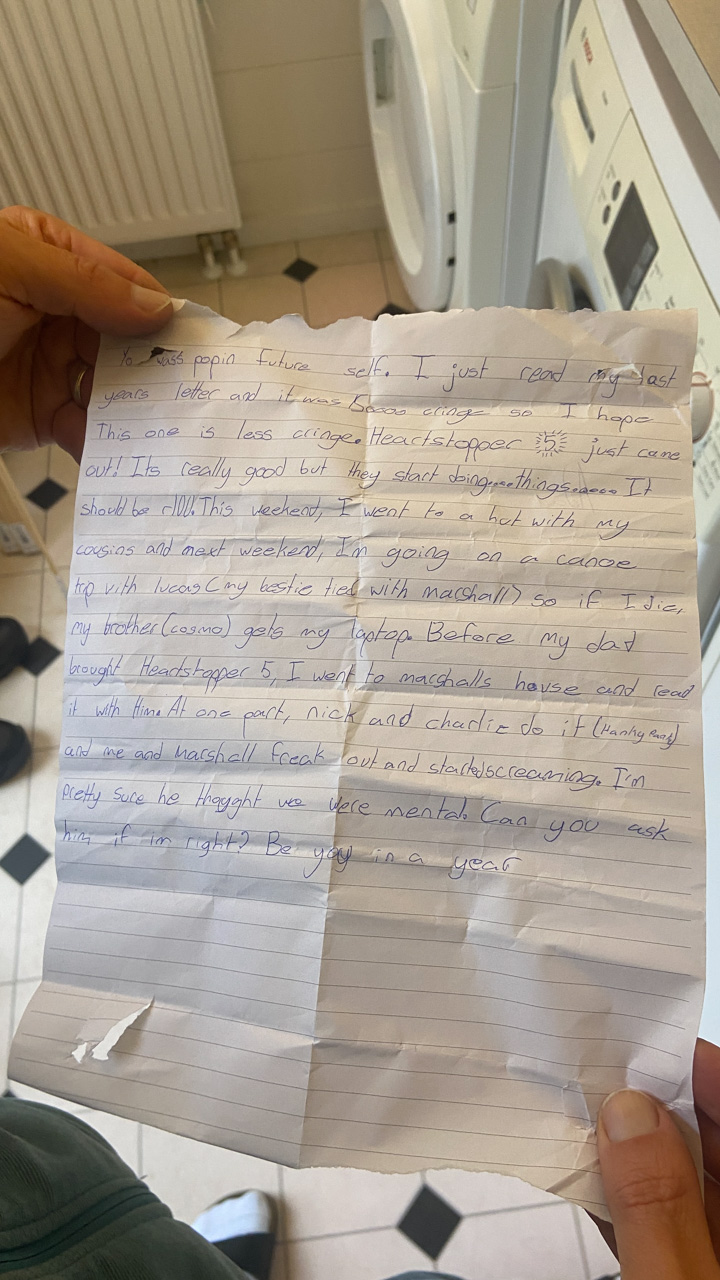 BOSCH
Yo wass popin future self. I just read my last
years letter and it was Soooo cringe so I hope
This one is less cringe. Heartstopper 5 just came
out! Its really good but they start doing.....things...... It
should be r100. This weekend, I went to a hut with my
cousins and next weekend, I'm going on a canoe
trip with lucas (my bestie tied with marshall) so if I die,
my brother (cosmo) gets my laptop. Before my dad
brought Heartstopper 5, I went to marshalls house and read
it with Him. At one part, nick and charlie do it (Hanky Panky)
and me and Marshall freak out and started screaming. I'm
pretty sure he thought we were mental. Can you ask
him if im right? Be you in a year